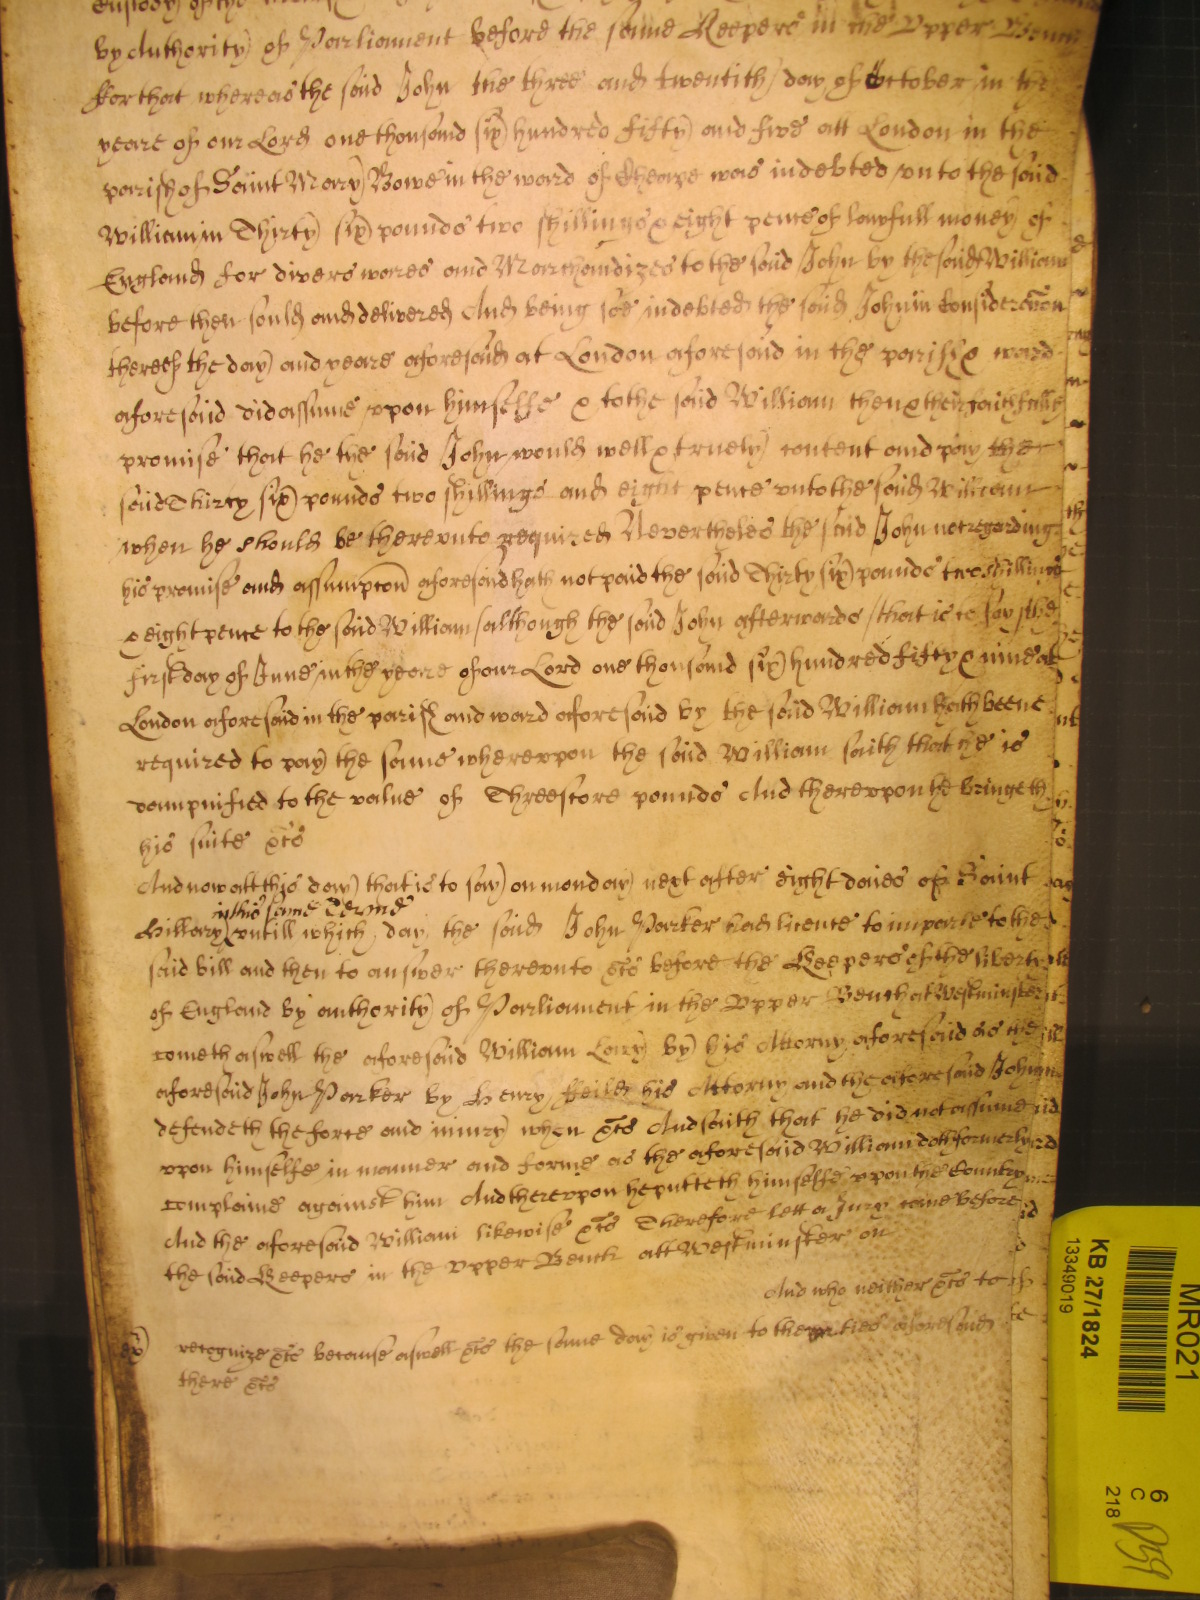 Custody of the
by Authority of Parliament before the same Keepers in the Upper Bench
For that whereas the said John the three and twentith day of October in the
yeare of our Lord one thousand six hundred fifty and five att London in the
parish of Saint Mary Bowe in the ward of Cheape was indebted unto the said
William in Thirty six pounds two shillings & eight pence of lawfull money of
England for divers wares and Marchandizes to the said John by the said William
before then sould and delivered And being soe indebted the said John in Consideracon
thereof the day and yeare aforesaid at London aforesaid in the parish & ward
aforesaid did assume vpon himselfe & to the said William then & there faithfully
promise that he the said John would well & truely content and pay the
said Thirty six pounds two shillings and eight pence vnto the said William
when he should be therevnto required Neverthelès the said John not regarding
his promise and assumpcon aforesaid hath not paid the said Thirty six pounds two shillings
& eight pence to the said William although the said John afterwards that is to say the
first day of June in the yeare of our Lord one thousand six hundred fifty & nine att
London aforesaid in the parish and ward aforesaid by the said William hath beene
required to pay the same wherevpon the said William saith that he is
dampnified to the value of Threescore pounds And therevpon he bringeth
his suite &c
And now att this day that is to say on monday next after eight daies of Saint
in this same Terme
Hillary vntill which day the said John Parker had licence to imparle to the
said bill and then to answer therevnto &c before the Keepers of the liberty
of England by authority of Parliament in the Upper Bench at Westminster
cometh aswell the aforesaid William by his Attorny aforesaid as the
aforesaid John Parker by Henry Feild his Attorny and the aforesaid John
defendeth the force and iniury when &c And saith that he did not assume
vpon himselfe in manner and forme as the aforesaid William doth formerly
complaine against him And therevpon he putteth himselfe vpon the Country
And the aforesaid William likewise &c Therefore lett a Jury come before
the said Keepers in the Upper Bench att Westminster on
And who neither &c to
recognize &c because aswell &c the same day is given to the parties aforesaid
there &c
MR021
KB 27/1824
13349019
6
C
218